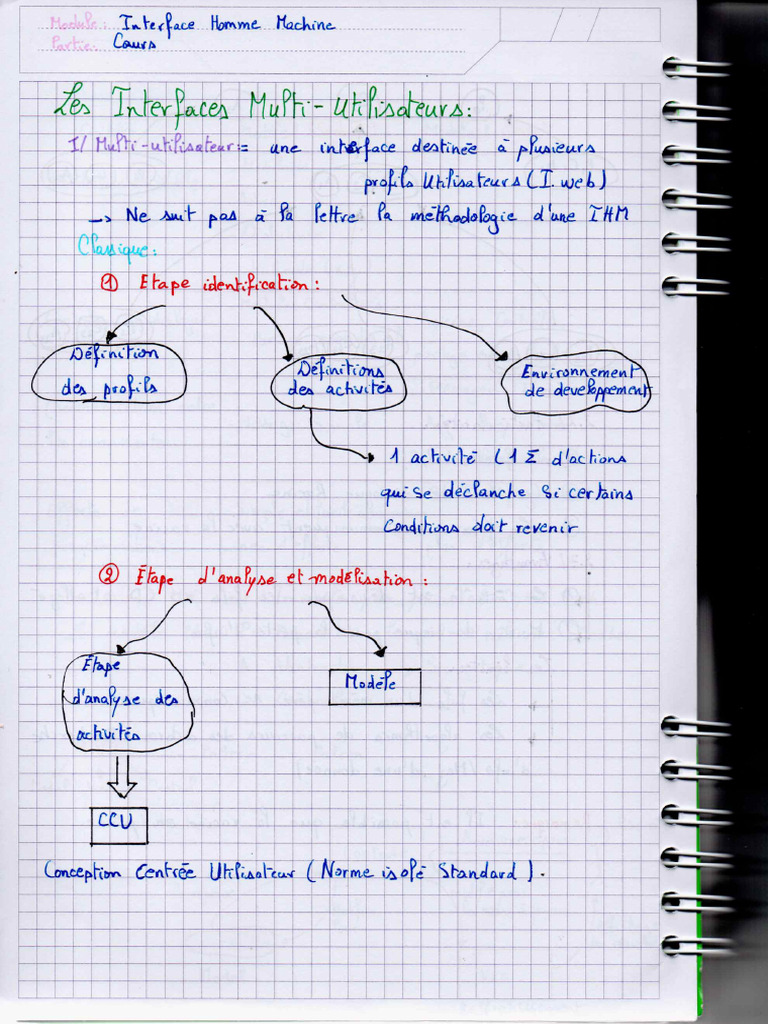 Module: Interface Homme Machine
Partie: Cours
Les Interfaces Multi-Utilisateurs:
I/ Multi-utilisateur:= une interface destinée à plusieurs
profils Utilisateurs (I. web)
→ Ne suit pas à la lettre la méthodologie d'une IHM
Classique:
① Etape identification :
Définition
des profils
Définitions
des activités
Environnement
de developpement
1 activité ( 1 Σ d'actions
qui se déclanche si certains
Conditions doit revenir
② Étape d'analyse et modélisation :
Etape
d'analyse des
activités
Modéle
CCU
Conception Centrée Utilisateur ( Norme isolé Standard ).